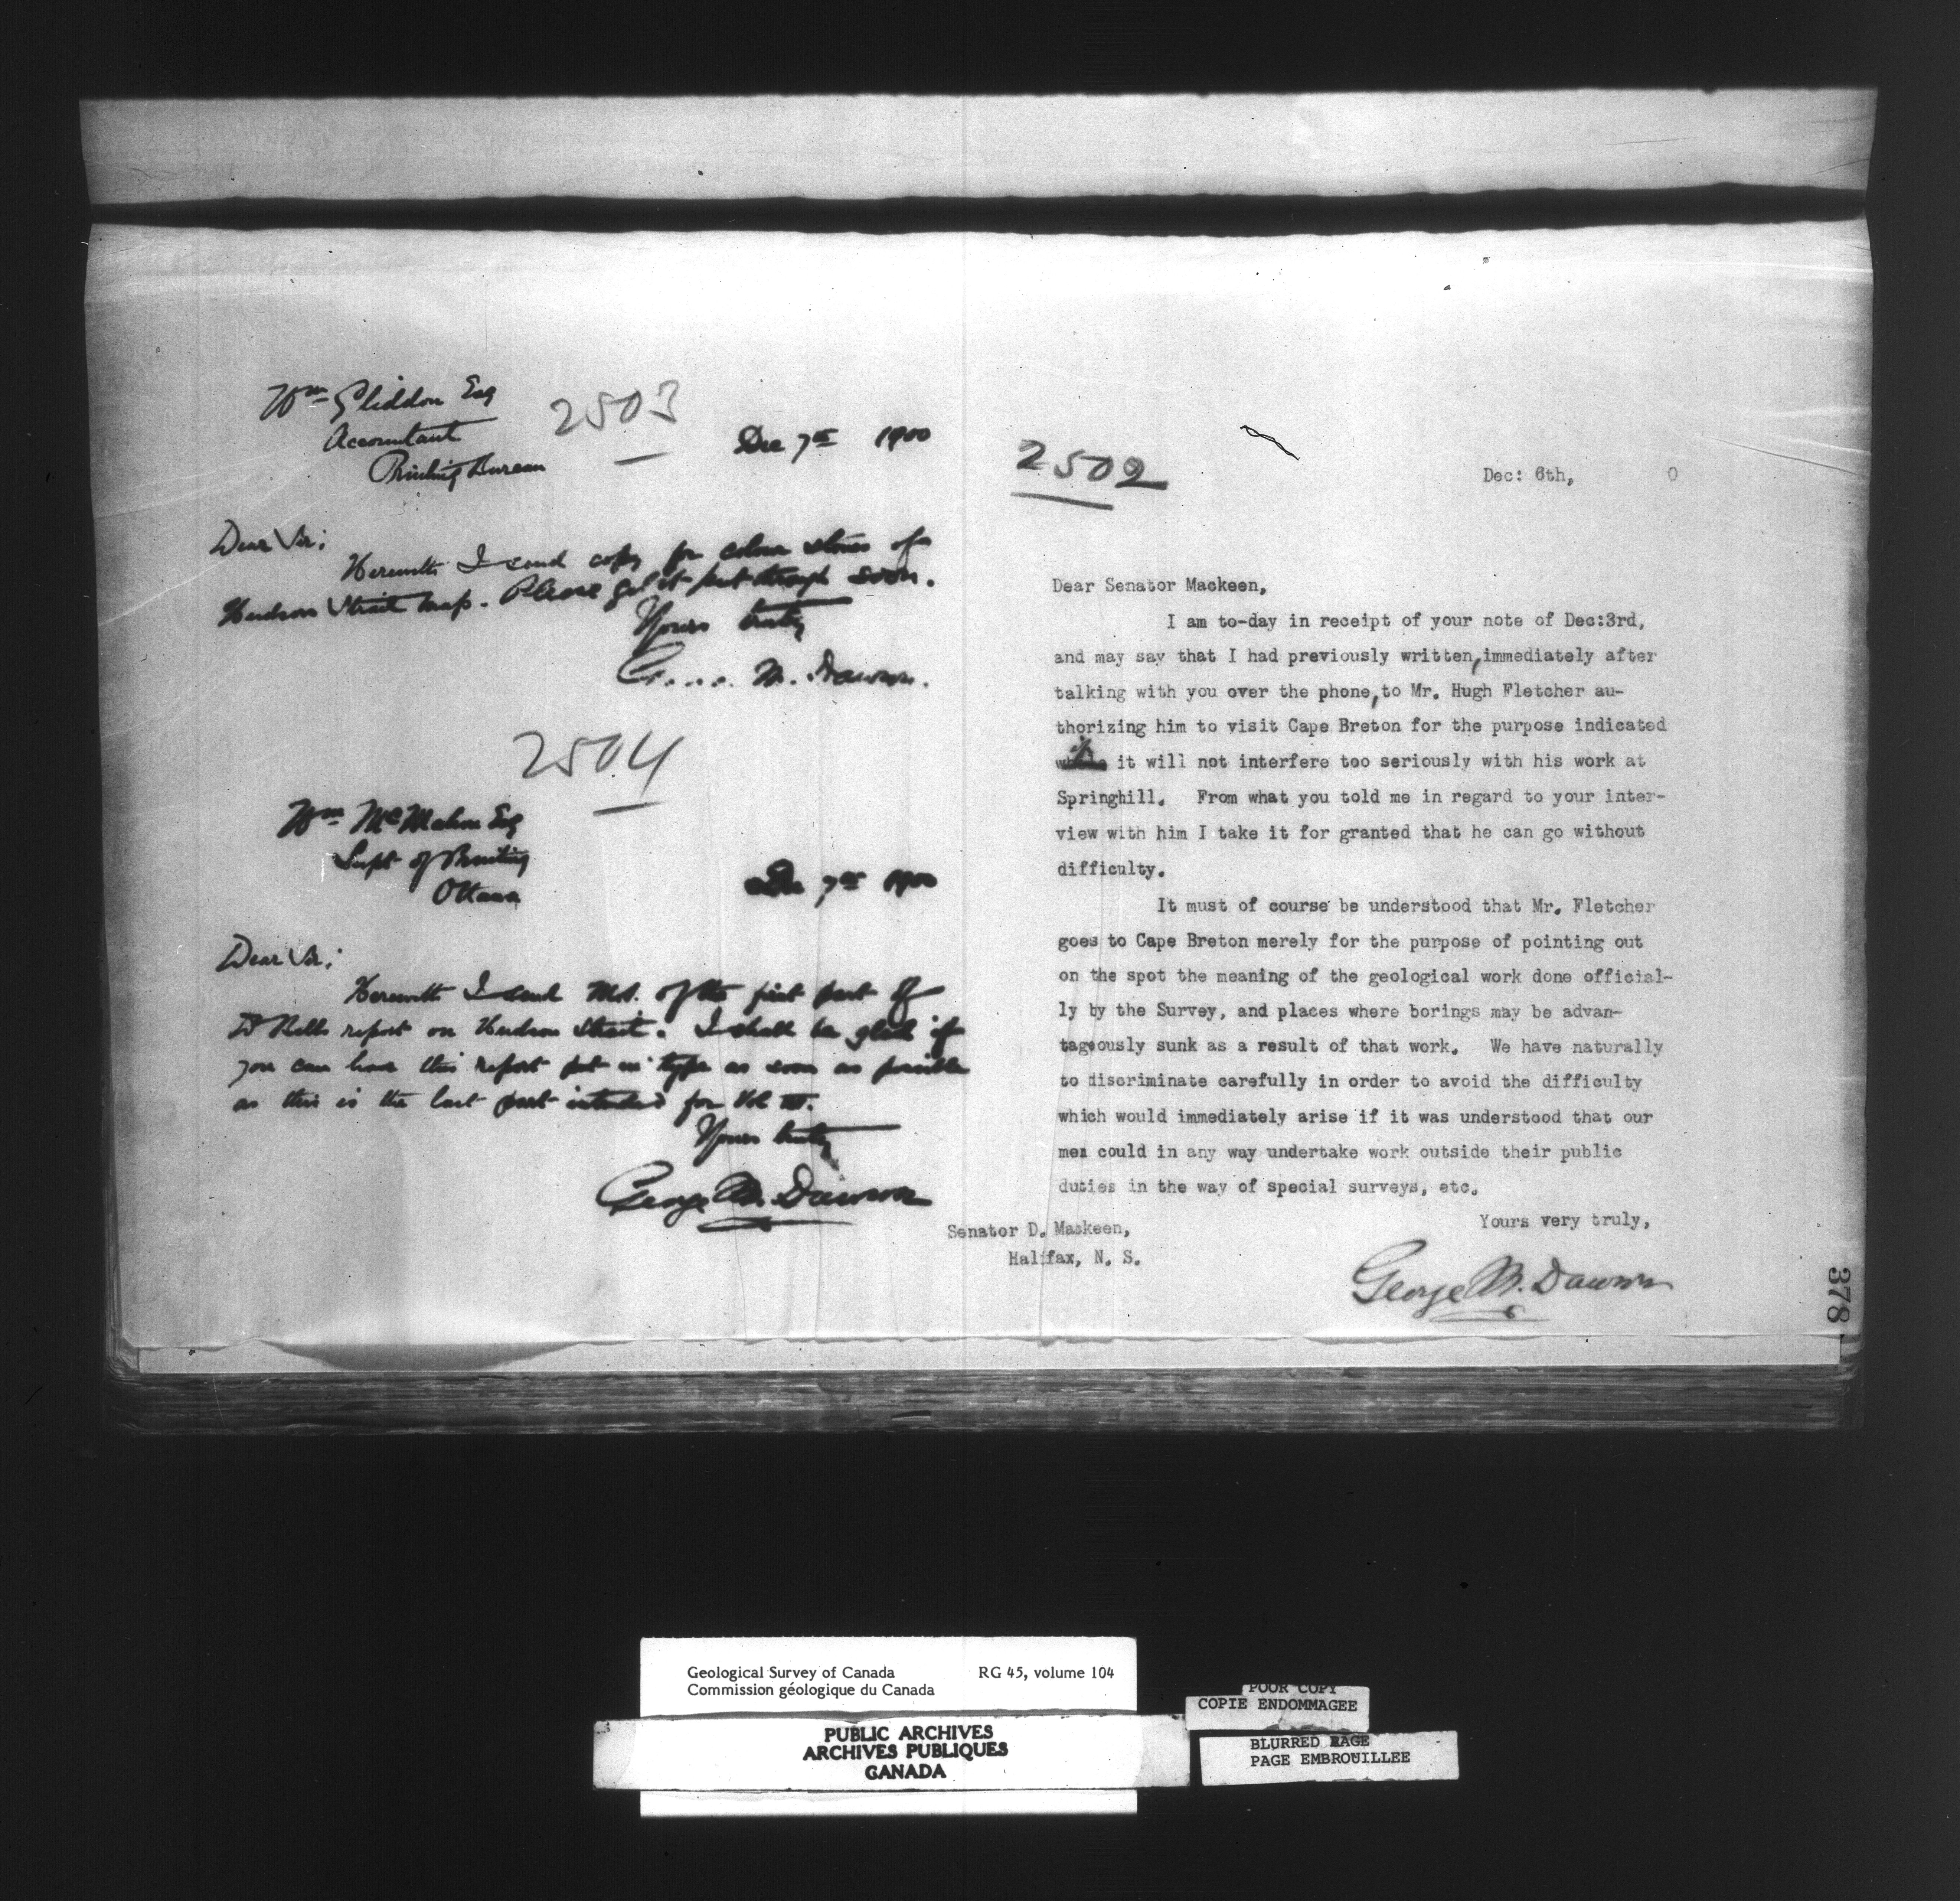 Wm Gliddon Esq
Accountant
Printing Bureau
2503
Dec 7th 1900
Dear Sir;
Herewith I send copy for colour stones of
Hudson Strait map. Please get it put through soon.
Yours truly
G.... M. Dawson.
2504
Wm McMahon Esq
Supt of Printing
Ottawa
Dec 7th 1900
Dear Sir;
Herewith I send MS. of the first part of
Dr Bells report on Hudson Strait. I shall be glad if
you can have this report put in type as soon as possible
as this is the last part intended for Vol
Yours truly
George M. Dawson
2502
Dec: 6th, 0
Dear Senator Mackeen,
I am to-day in receipt of your note of Dec:3rd,
and may say that I had previously written, immediately after
talking with you over the phone, to Mr. Hugh Fletcher au-
thorizing him to visit Cape Breton for the purpose indicated
if it will not interfere too seriously with his work at
Springhill. From what you told me in regard to your inter-
view with him I take it for granted that he can go without
difficulty.
It must of course be understood that Mr. Fletcher
goes to Cape Breton merely for the purpose of pointing out
on the spot the meaning of the geological work done official-
ly by the Survey, and places where borings may be advan-
tageously sunk as a result of that work. We have naturally
to discriminate carefully in order to avoid the difficulty
which would immediately arise if it was understood that our
men could in any way undertake work outside their public
duties in the way of special surveys, etc.
Yours very truly,
Senator D. Mackeen,
Halifax, N. S.
George M. Dawson
378
Geological Survey of Canada RG 45, volume 104
Commission géologique du Canada
PUBLIC ARCHIVES
ARCHIVES PUBLIQUES
CANADA
POOR COPY
COPIE ENDOMMAGEE
BLURRED PAGE
PAGE EMBROUILLEE